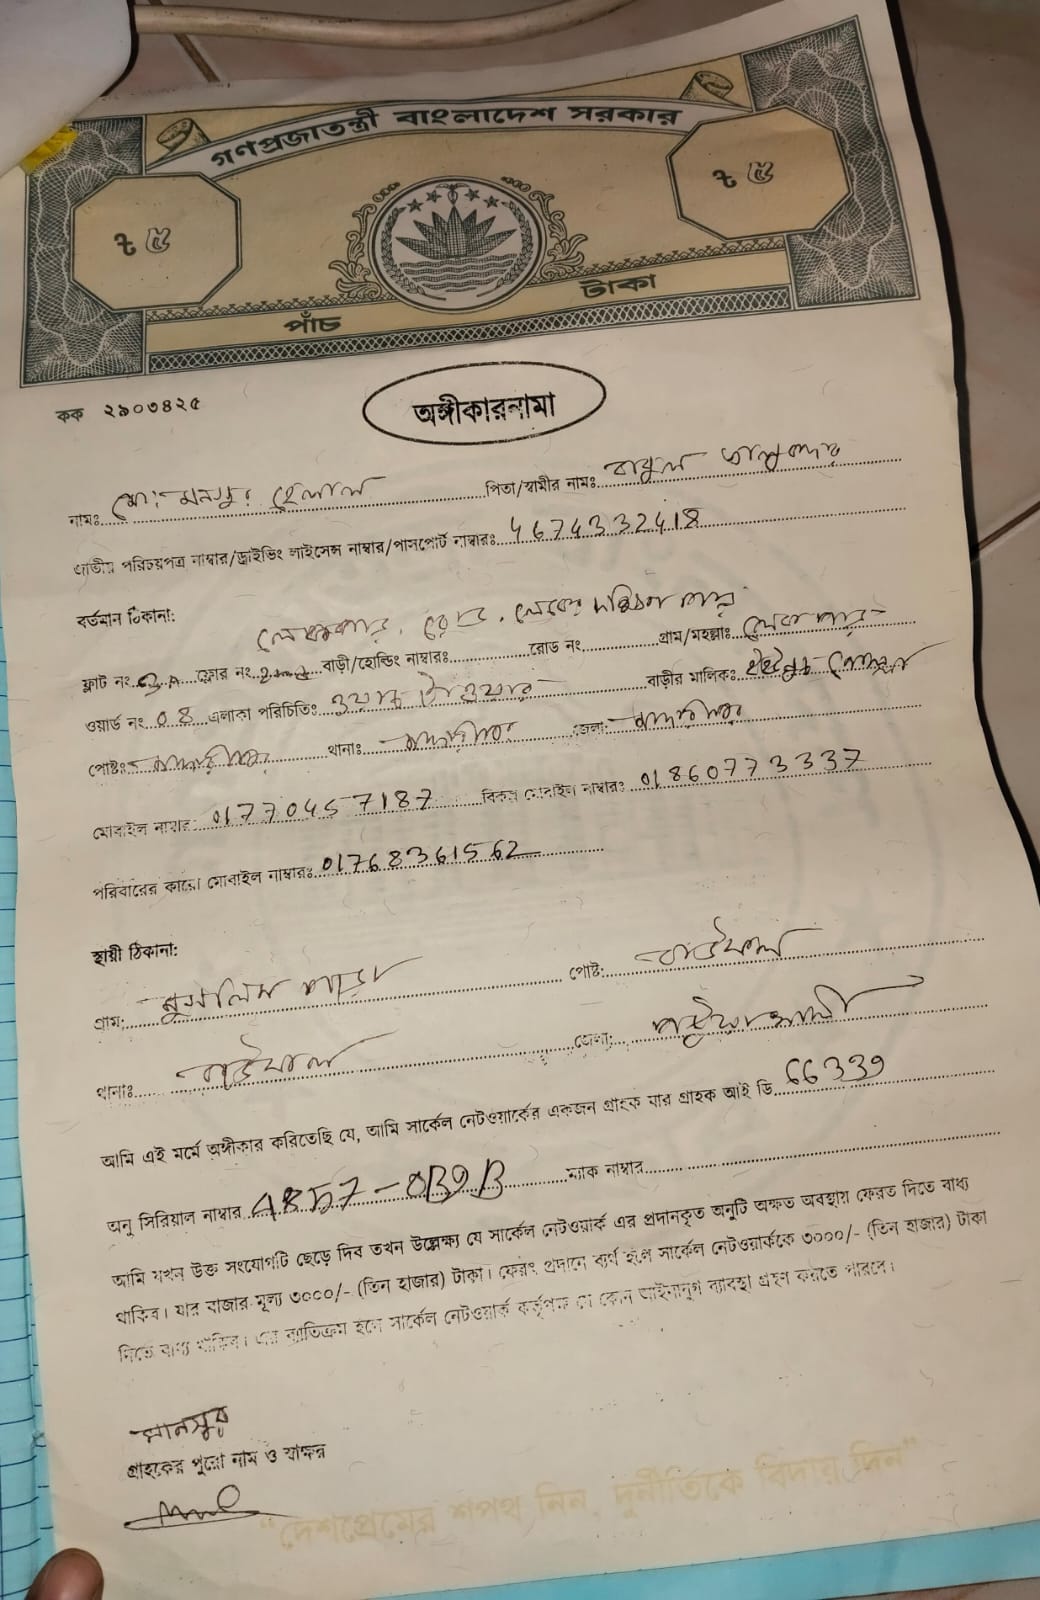 গণপ্রজাতন্ত্রী বাংলাদেশ সরকার
৳ ৫
৳ ৫
পাঁচ টাকা
কক ২৯০৩৪২৫
অঙ্গীকারনামা
নামঃ মোঃ মনসুর হেলাল পিতা/স্বামীর নামঃ বাবুল তালুকদার
জাতীয় পরিচয়পত্র নাম্বার/ড্রাইভিং লাইসেন্স নাম্বার/পাসপোর্ট নাম্বারঃ 4674332418
বর্তমান ঠিকানা:
রোড, লেকের দক্ষিণ পাড়
ফ্লাট নং ফ্লোর নং বাড়ী/হোল্ডিং নাম্বারঃ রোড নং গ্রাম/মহল্লাঃ লেক পাড়
ওয়ার্ড নং 08 এলাকা পরিচিতিঃ টাওয়ার বাড়ীর মালিকঃ
পোষ্টঃ মাদারীপুর থানাঃ মাদারীপুর জেলা: মাদারীপুর
মোবাইল নাম্বার: 01770457187 বিকল্প মোবাইল নাম্বারঃ 01860773337
পরিবারের কারো মোবাইল নাম্বারঃ 01768361562
স্থায়ী ঠিকানা:
গ্রাম: মুসলিম পাড়া পোষ্ট: বাউফল
থানাঃ বাউফল জেলা: পটুয়াখালী
আমি এই মর্মে অঙ্গীকার করিতেছি যে, আমি সার্কেল নেটওয়ার্কের একজন গ্রাহক যার গ্রাহক আই ডি 66339
অনু সিরিয়াল নাম্বার ম্যাক নাম্বার
আমি যখন উক্ত সংযোগটি ছেড়ে দিব তখন উল্লেক্ষ্য যে সার্কেল নেটওয়ার্ক এর প্রদানকৃত অনুটি অক্ষত অবস্থায় ফেরত দিতে বাধ্য
থাকিব। যার বাজার মূল্য ৩০০০/- (তিন হাজার) টাকা। ফেরৎ প্রদানে ব্যর্থ হলে সার্কেল নেটওয়ার্ককে ৩০০০/- (তিন হাজার) টাকা
দিতে বাধ্য থাকিব। এর ব্যতিক্রম হলে সার্কেল নেটওয়ার্ক কর্তৃপক্ষ যে কোন আইনানুগ ব্যবস্থা গ্রহণ করতে পারবে।
মানসুর
গ্রাহকের পুরো নাম ও স্বাক্ষর
"দেশপ্রেমের শপথ নিন, দুর্নীতিকে বিদায় দিন"